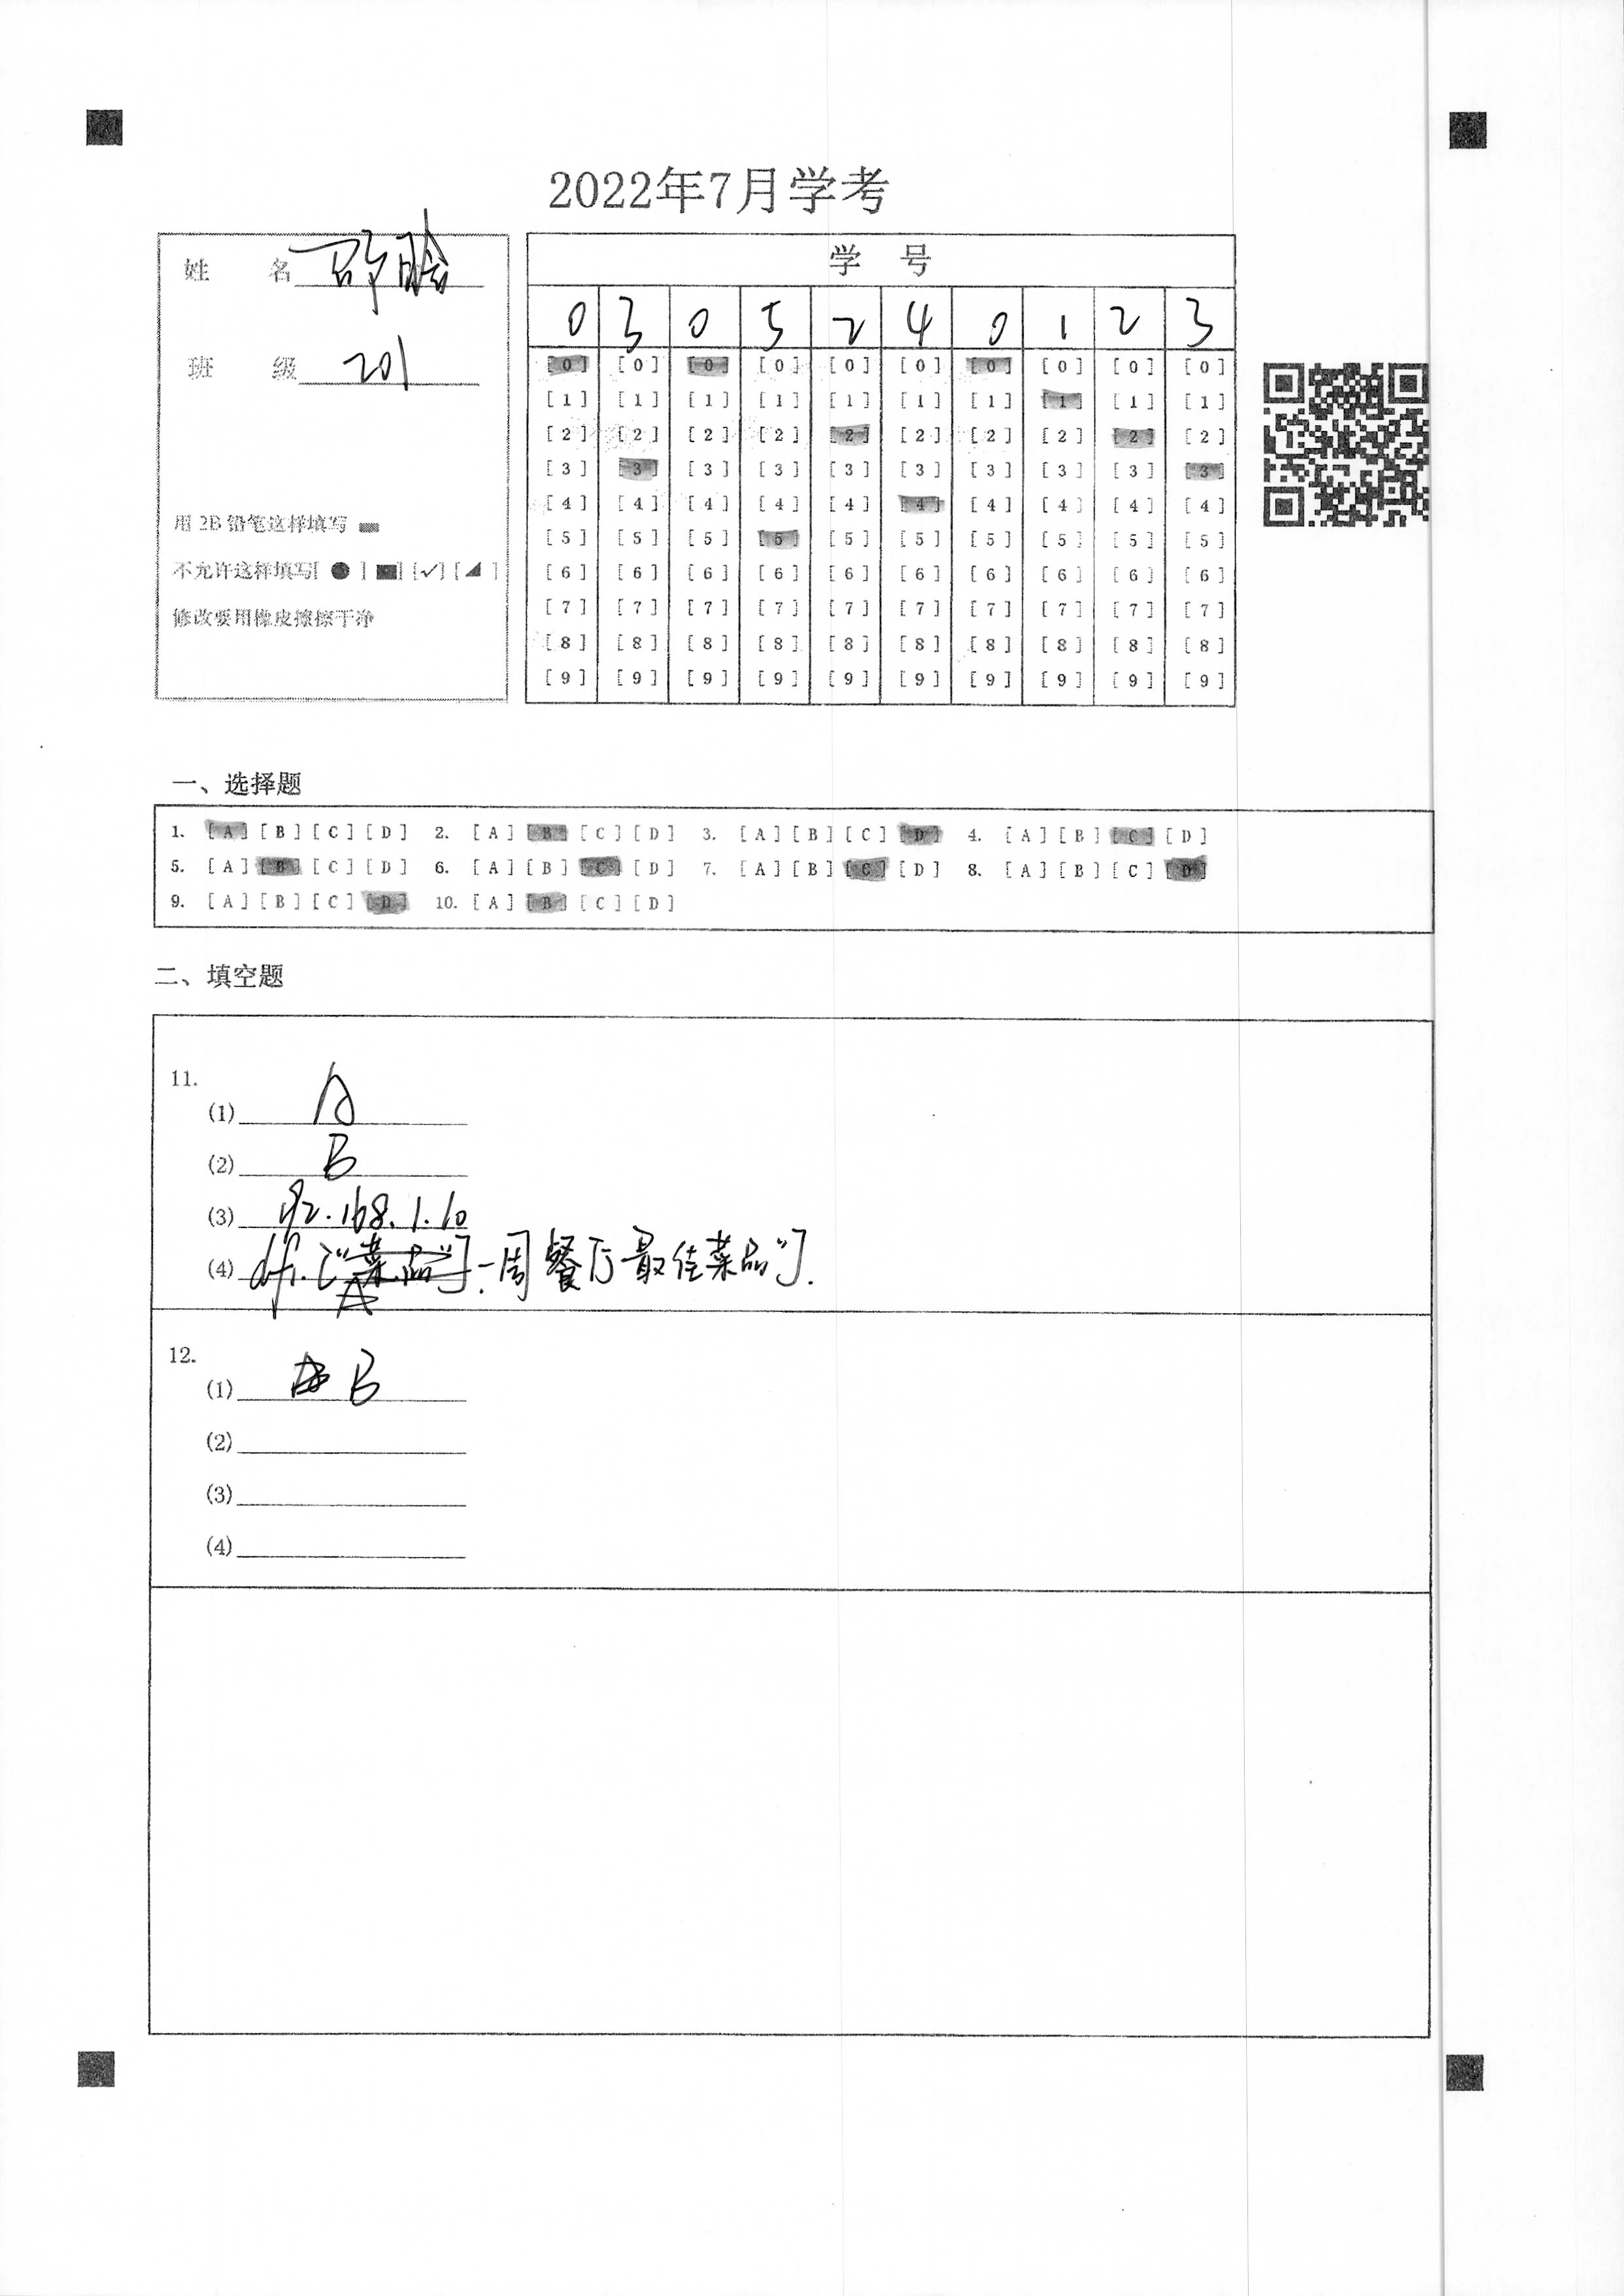 2022年7月学考
姓 名
班 级 201
用 2B 铅笔这样填写
不允许这样填写[ ● ] [■] [✓] [◢ ]
修改要用橡皮擦擦干净
学 号
0 3 0 5 2 4 0 1 2 3
[0] [0] [0] [0] [0] [0] [0] [0] [0] [0]
[1] [1] [1] [1] [1] [1] [1] [1] [1] [1]
[2] [2] [2] [2] [2] [2] [2] [2] [2] [2]
[3] [3] [3] [3] [3] [3] [3] [3] [3] [3]
[4] [4] [4] [4] [4] [4] [4] [4] [4] [4]
[5] [5] [5] [5] [5] [5] [5] [5] [5] [5]
[6] [6] [6] [6] [6] [6] [6] [6] [6] [6]
[7] [7] [7] [7] [7] [7] [7] [7] [7] [7]
[8] [8] [8] [8] [8] [8] [8] [8] [8] [8]
[9] [9] [9] [9] [9] [9] [9] [9] [9] [9]
一、选择题
1. [A] [B] [C] [D] 2. [A] [B] [C] [D] 3. [A] [B] [C] [D] 4. [A] [B] [C] [D]
5. [A] [B] [C] [D] 6. [A] [B] [C] [D] 7. [A] [B] [C] [D] 8. [A] [B] [C] [D]
9. [A] [B] [C] [D] 10. [A] [B] [C] [D]
二、填空题
11.
(1) A
(2) B
(3) 192.168.1.10
(4) df1.["菜品"]一周餐厅最佳菜品"].
12.
(1) B
(2)
(3)
(4)